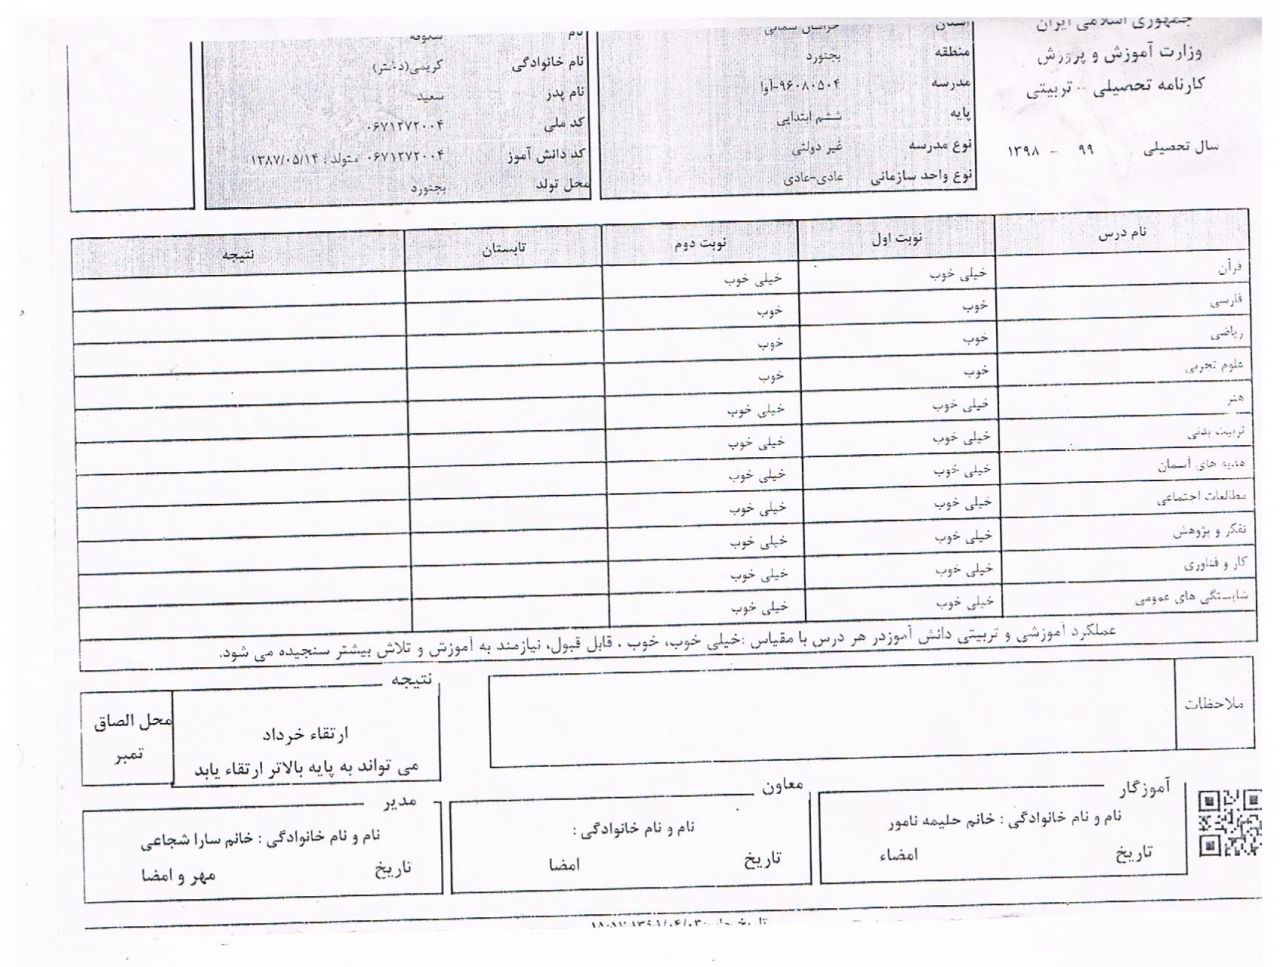 جمهوری اسلامی ایران
وزارت آموزش و پرورش
کارنامه تحصیلی - تربیتی
سال تحصیلی ۹۹ - ۱۳۹۸
استان خراسان شمالی
منطقه بجنورد
مدرسه ۹۶۰۸۰۵۰۴-آوا
پایه ششم ابتدایی
نوع مدرسه غیر دولتی
نوع واحد سازمانی عادی-عادی
نام
نام خانوادگی کریمی(دختر)
نام پدر سعید
کد ملی ۰۶۷۱۲۷۲۰۰۴
کد دانش آموز ۰۶۷۱۲۷۲۰۰۴ متولد : ۱۳۸۷/۰۵/۱۴
محل تولد بجنورد
نام درس نوبت اول نوبت دوم تابستان نتیجه
قرآن خیلی خوب خیلی خوب
فارسی خوب خوب
ریاضی خوب خوب
علوم تجربی خوب خوب
هنر خیلی خوب خیلی خوب
تربیت بدنی خیلی خوب خیلی خوب
هدیه های آسمان خیلی خوب خیلی خوب
مطالعات اجتماعی خیلی خوب خیلی خوب
تفکر و پژوهش خیلی خوب خیلی خوب
کار و فناوری خیلی خوب خیلی خوب
شایستگی های عمومی خیلی خوب خیلی خوب
عملکرد آموزشی و تربیتی دانش آموزدر هر درس با مقیاس :خیلی خوب، خوب ، قابل قبول، نیازمند به آموزش و تلاش بیشتر سنجیده می شود.
ملاحظات
نتیجه
ارتقاء خرداد
می تواند به پایه بالاتر ارتقاء یابد
محل الصاق
تمبر
آموزگار
نام و نام خانوادگی : خانم حلیمه نامور
تاریخ امضاء
معاون
نام و نام خانوادگی :
تاریخ امضا
مدیر
نام و نام خانوادگی : خانم سارا شجاعی
تاریخ مهر و امضا